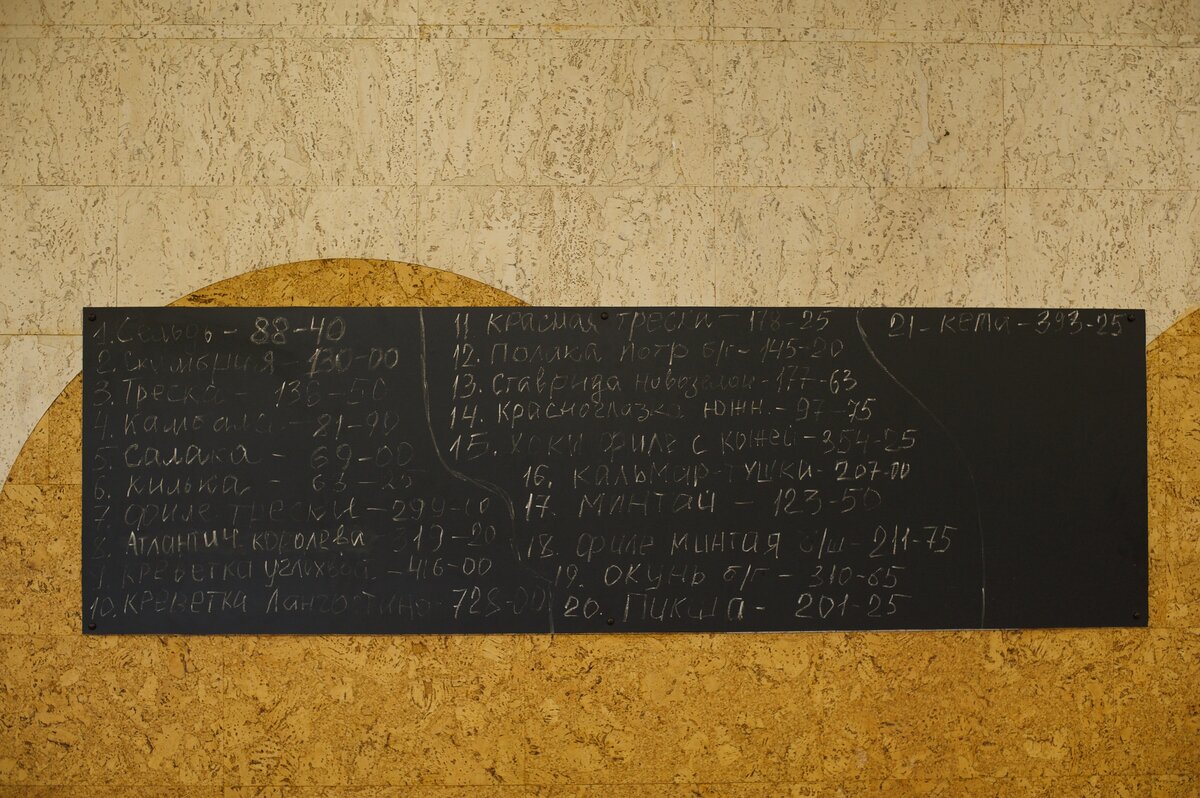 1. Сельдь - 88-40
2. Скумбрия - 130-00
3. Треска - 138-50
4. Камбала - 81-90
5. Салака - 69-00
6. Килька - 63-25
7. Филе трески - 299-10
8. Атлантич. королеви 319-20
9. Креветка углохвой - 416-00
10. Креветка Лангостино - 728-00
11. Красная трески - 178-25
12. Полака потр б/г - 145-20
13. Ставрида новозелан - 177-63
14. Красноглазка южн. - 97-75
15. Хоки филе с кожей - 354-25
16. Кальмар-тушки - 207-00
17. Минтай - 123-50
18. Филе минтая б/ш - 211-75
19. Окунь б/г - 310-65
20. Пикша - 201-25
21 - Кета - 393-25